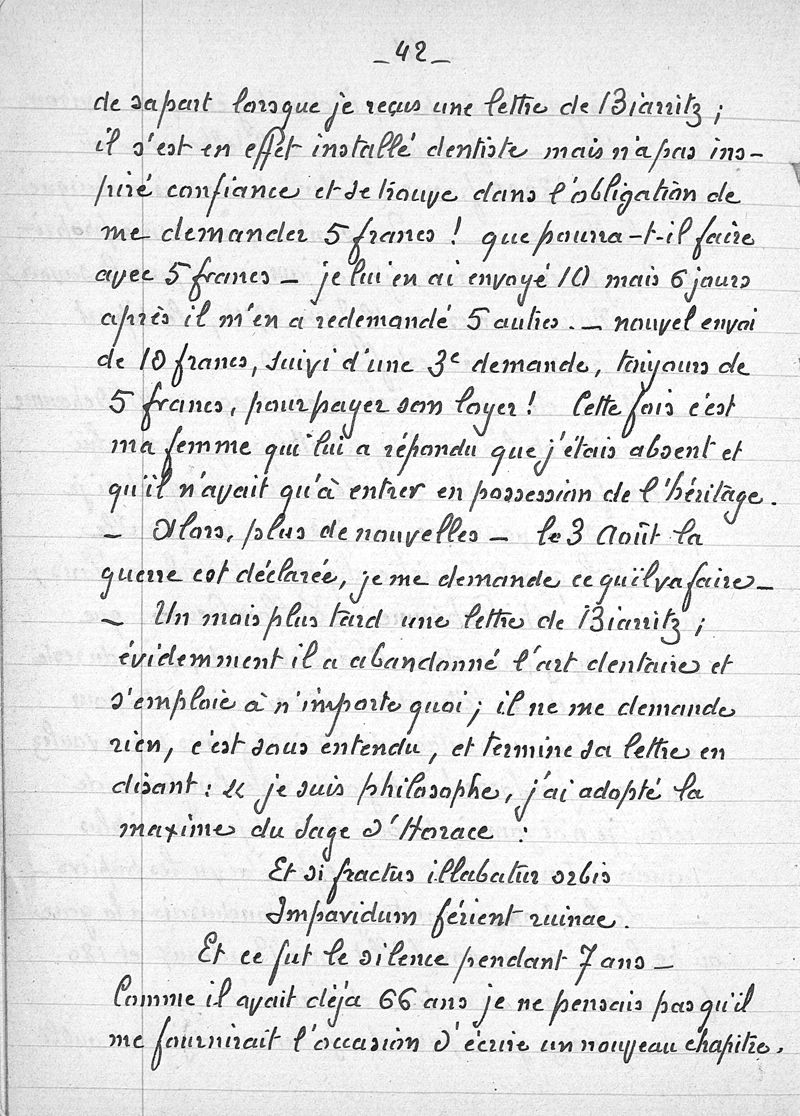 _ 42 _
de sa part lorsque je reçus une lettre de Biarritz ;
il s'est en effet installé dentiste mais n'a pas ins-
piré confiance et se trouve dans l'obligation de
me demander 5 francs ! que pourra-t-il faire
avec 5 francs _ je lui en ai envoyé 10 mais 6 jours
après il m'en a redemandé 5 autres . _ nouvel envoi
de 10 francs, suivi d'une 3e demande, toujours de
5 francs, pour payer son loyer ! Cette fois c'est
ma femme qui lui a répondu que j'étais absent et
qu'il n'avait qu'à entrer en possession de l'héritage .
_ Alors, plus de nouvelles _ le 3 Août la
guerre est déclarée, je me demande ce qu'il va faire _
_ Un mois plus tard une lettre de Biarritz ;
évidemment il a abandonné l'art dentaire et
s'emploie à n'importe quoi ; il ne me demande
rien, c'est sous entendu, et termine sa lettre en
disant : « je suis philosophe, j'ai adopté la
maxime du Sage d'Horace :
Et si fractus illabatur orbis
Impavidum férient ruinae .
Et ce fut le silence pendant 7 ans _
Comme il avait déjà 66 ans je ne pensais pas qu'il
me fournirait l'occasion d'écrire un nouveau chapitre .